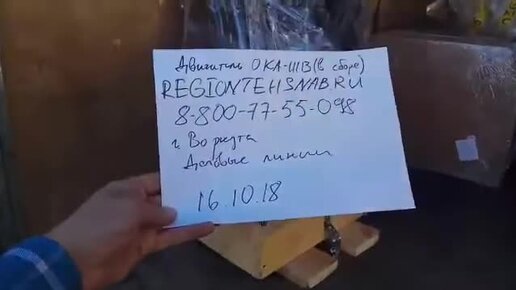 Двигатель ОКА-1113 (в сборе)
REGIONTEHSNAB.RU
8-800-77-55-098
г. Воркута
Деловые линии
16.10.18